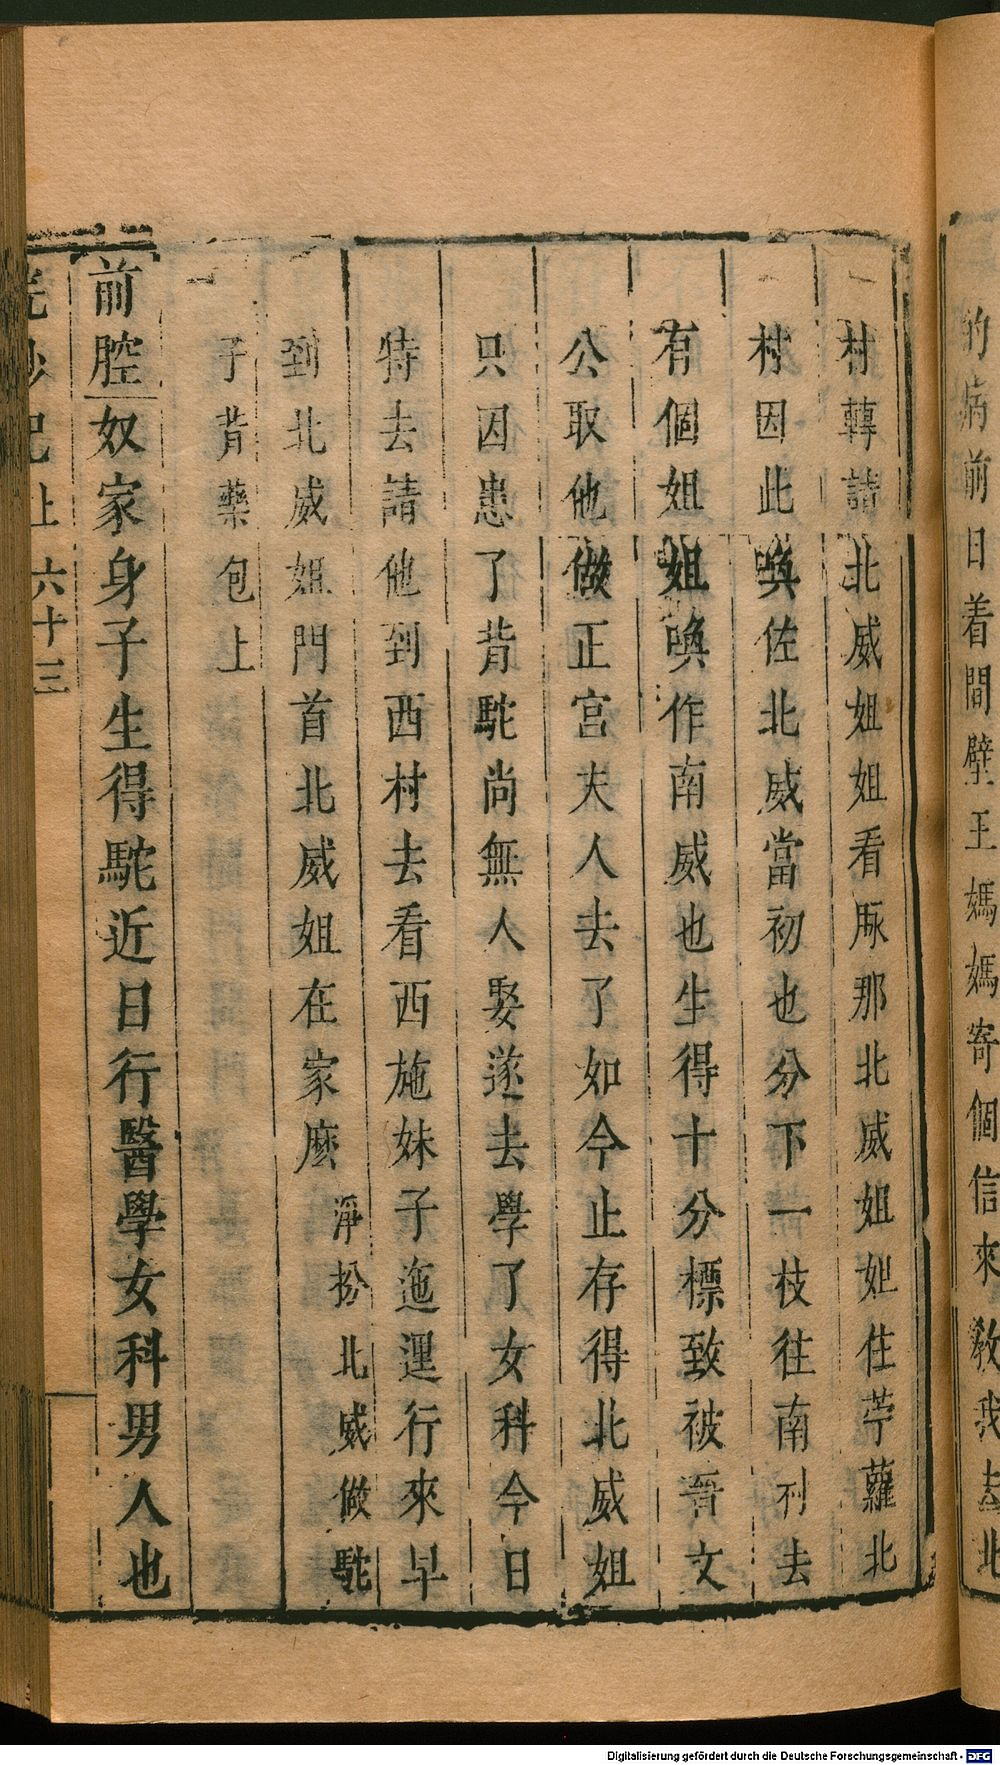 的病前日着間壁王媽媽寄個信來敎我去北
村轉請北威姐姐看脉那北威姐姐住苧蘿北
村因此喚佐北威當初也分下一枝往南刋去
有個姐姐喚作南威也生得十分標致被晋文
公取他做正宮夫人去了如今止存得北威姐
只因患了背駝尚無人娶遂去學了女科今日
特去請他到西村去看西施妹子迤逦行來早
到北威姐門首北威姐在家麽淨扮北威做駝
子背藥包上
前腔奴家身子生得駝近日行醫學女科男人也
浣紗記上六十三
Digitalisierung gefördert durch die Deutsche Forschungsgemeinschaft - DFG